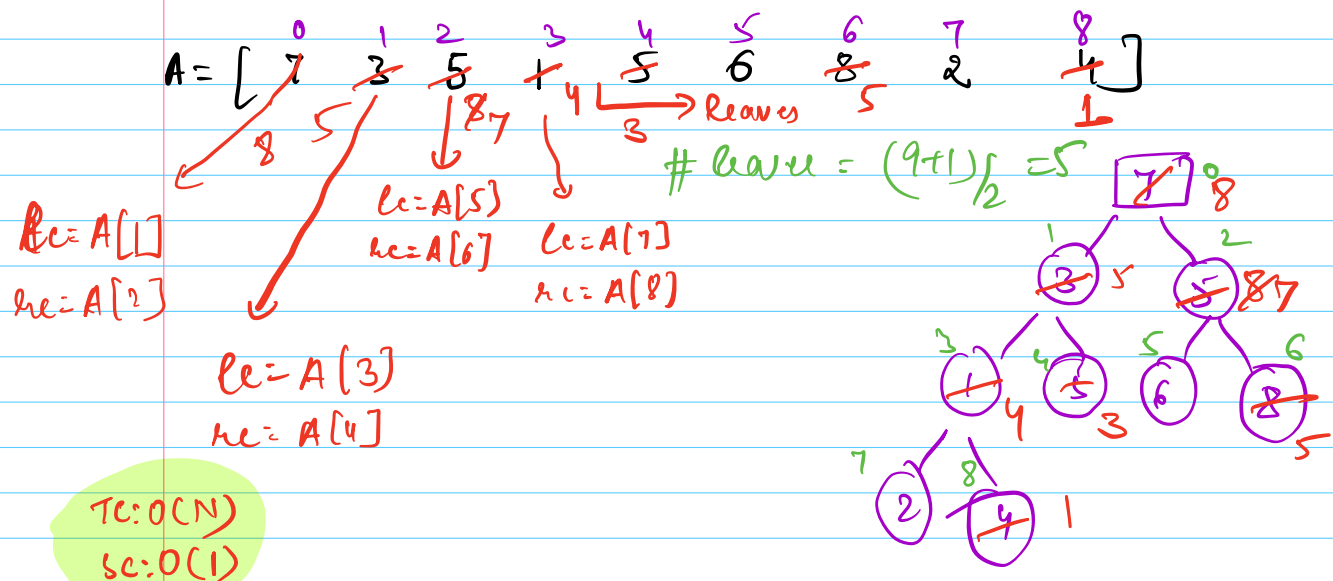 0 1 2 3 4 5 6 7 8
A = [ 7 3 5 1 5 6 8 2 4 ]
8 5 8 7 4 3 → Leaves 5 1
# leaves = (9+1)/2 = 5
lc = A[1]
rc = A[2]
lc = A[5]
rc = A[6]
lc = A[7]
rc = A[8]
lc = A[3]
rc = A[4]
TC: O(N)
SC: O(1)
7 0 8
1 3 5
2 5 8 7
3 1 4
4 5 3
5 6
6 8 5
7 2
8 4 1